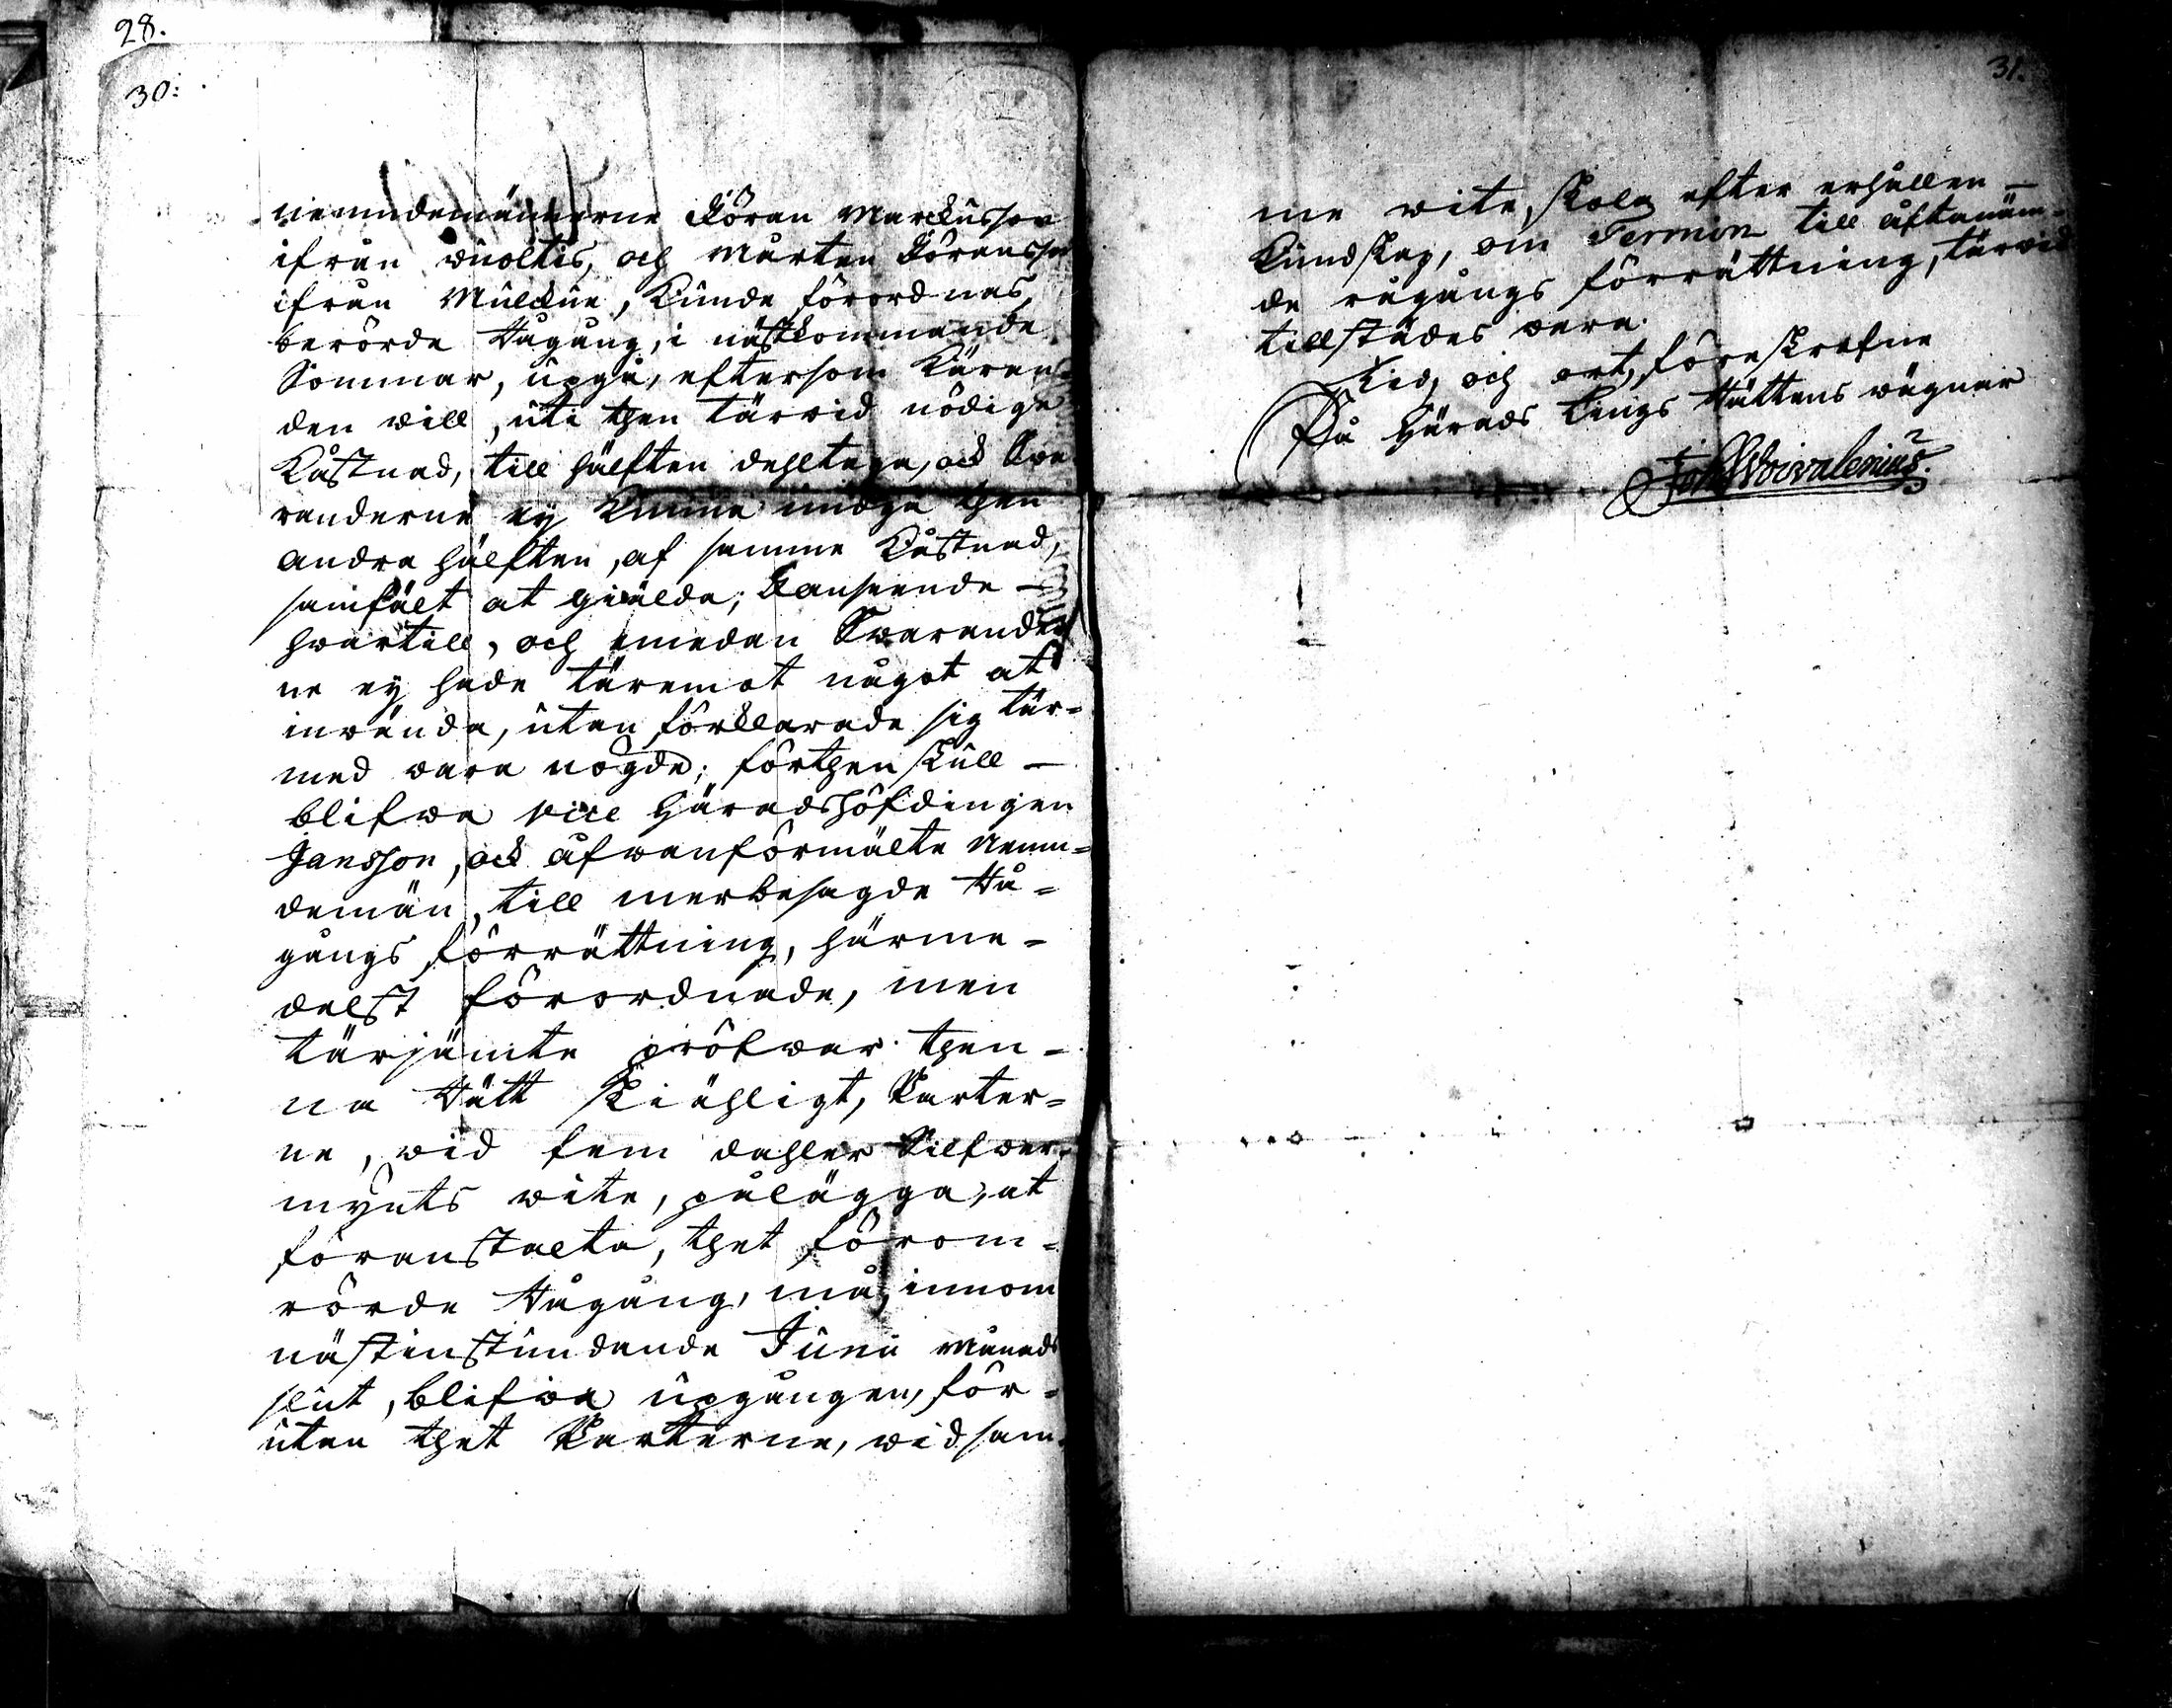 28.
30:
nemndemännerne Göran Marckusson
ifrån Wuoltis, och Mårten Göransson
ifrån Mulckue, kunde förordnas,
berörde Rågång, i nästkommande
Sommar, upgå, eftersom Käran=
den will, uti then tärvid nödige
Kåstnad, till hälften dehltaga, ock Swa
randerne ey kunna undgå then
andra hälften, af samma Kåstnad,
samfält at giälda; Kanseende
hwartill, och emedan Swarander
ne ey hade täremot något at
inwända, utan förklarade sig tär=
med vara nögde; förthenskull
blifwa vice Häradshöfdingen
Jansson, ock åfwanförmälte Nemn=
demän, till merbesagde Rå=
gångs förrättning, härme=
delst förordnade, men
tärjämte pröfwar then=
na Rätt skiähligt, Parter=
ne, wid fem dahler Silfwer=
mynts wite, pålägga, at
föranstalta, thet förom=
rörde Rågång, må, innom
nästinstundande Junii Månads
slut, blifwa upgången, för=
utan thet Parterne, wid sam=
31.
me wite, skola efter erhållen
Kundskap, om Termin till åftanäm=
de rågångs förrättning, tärvid
tillstädes vara.
Tid, och ort, föreskrefne
På Härads Tings Rättens wägnar
Joh Woivalenius